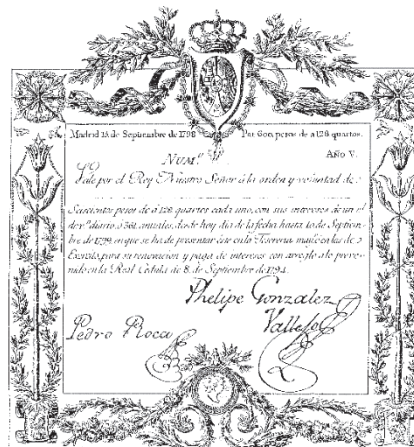 Madrid 15 de Septiembre de 1798 Por 600 pesos de a 128 quartos.
Año V.
NUM.º
Vale por el Rey Nuestro Señor á la orden y voluntad de
Seiscientos pesos de á 128 quartos cada uno, con sus intereses de un
diario, ó anuales, desde hoy dia de la fecha hasta 10 de Septiem-
bre de 1799 en que se ha de presentar éste en la Tesorería
para su renovacion y paga de intereses con arreglo á lo preve-
nido en la Real Cédula de 8 de Septiembre de 1794.
Phelipe Gonzalez
Vallejo
Pedro Roca